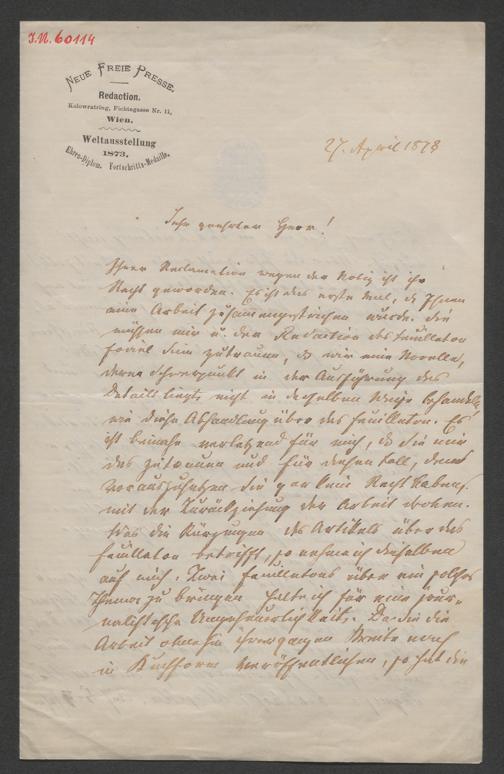 J.N. 60114
NEUE FREIE PRESSE.
Redaction.
Kolowratring, Fichtegasse Nr. 11,
Wien.
Weltausstellung
1873.
Ehren-Diplom. Fortschritts-Medaille.
27. April 1878
Sehr geehrter Herr!
Ihrer Reclamation wegen der Notiz ist ihr
Recht geworden. Es ist das erste Mal, dß Ihnen
eine Arbeit zusammengestrichen wurde. Sie
müssen mir u. der Redaction des Feuilleton
soviel Sinn zutrauen, dß wir eine Novelle,
deren Schwerpunkt in der Ausführung des
Details liegt, nicht in derselben Weise behandeln
wie diese Abhandlung über das Feuilleton. Es
ist beinahe verletzend für mich, dß Sie mir
das zutrauen und für diesen Fall, den
vorauszusetzen Sie gar kein Recht haben,
mit der Zurückziehung der Arbeit drohen.
Was die Kürzungen des Artikels über das
Feuilleton betrifft, so nehme ich dieselben
auf mich. Zwei Feuilletons über ein solches
Thema zu bringen halte ich für eine jour-
nalistische Ungeheuerlichkeit. Da Sie die
Arbeit ohnehin ihrer ganzen Breite nach
in Buchform veröffentlichen, so hat die